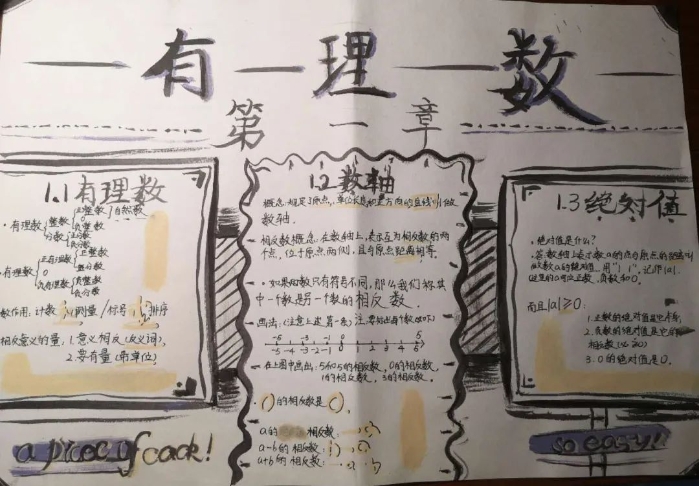 有理数
第一章
1.1 有理数
· 有理数 整数 正整数 自然数
0
负整数
分数 正分数
负分数
· 有理数 正有理数 正整数
正分数
0
负有理数 负整数
负分数
数作用: 计数 测量 / 标号 排序
相反意义的量: 1.意义相反(反义词),
2.要有量(带单位)
1.2 数轴
概念: 规定了原点,单位长度和正方向的直线叫做
数轴.
相反数概念: 在数轴上,表示互为相反数的两
个点,位于原点两侧,且与原点距离相等.
· 如果两数只有符号不同,那么我们称其
中一个数是另一个数的相反数.
画法:
-5 -4 -3 -2 -1 0 1 2 3 4 5
在上图中画出: 5和5的相反数, 0的相反数,
1的相反数, 3的相反数.
· 0的相反数是0.
a的相反数:
a-b的相反数:
a+b的相反数:
1.3 绝对值
· 绝对值是什么?
答: 数轴上表示数a的点与原点的距离叫
做数a的绝对值. 用"| |", 记作|a|.
负数和0.
而且|a|≥0:
1.正数的绝对值是它本身,
2.负数的绝对值是它的
相反数
3.0的绝对值是0.
a piece of cack!
so easy!